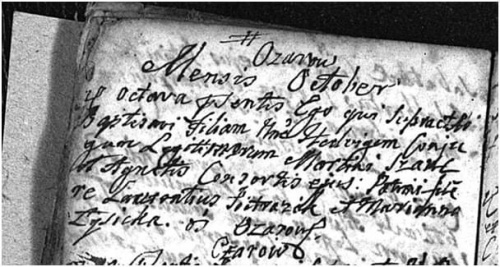 Ozarow
Mensis October
octava psentis Ego qui supra
Baptisavi filiam noe Hedvigem Conju
gum Legitimorum Martini
et Agnetis Consortis ejus: Patrini fue
re Laurentius Pietrazak et Marianna
Zysicka. os Ozarow
Czarow